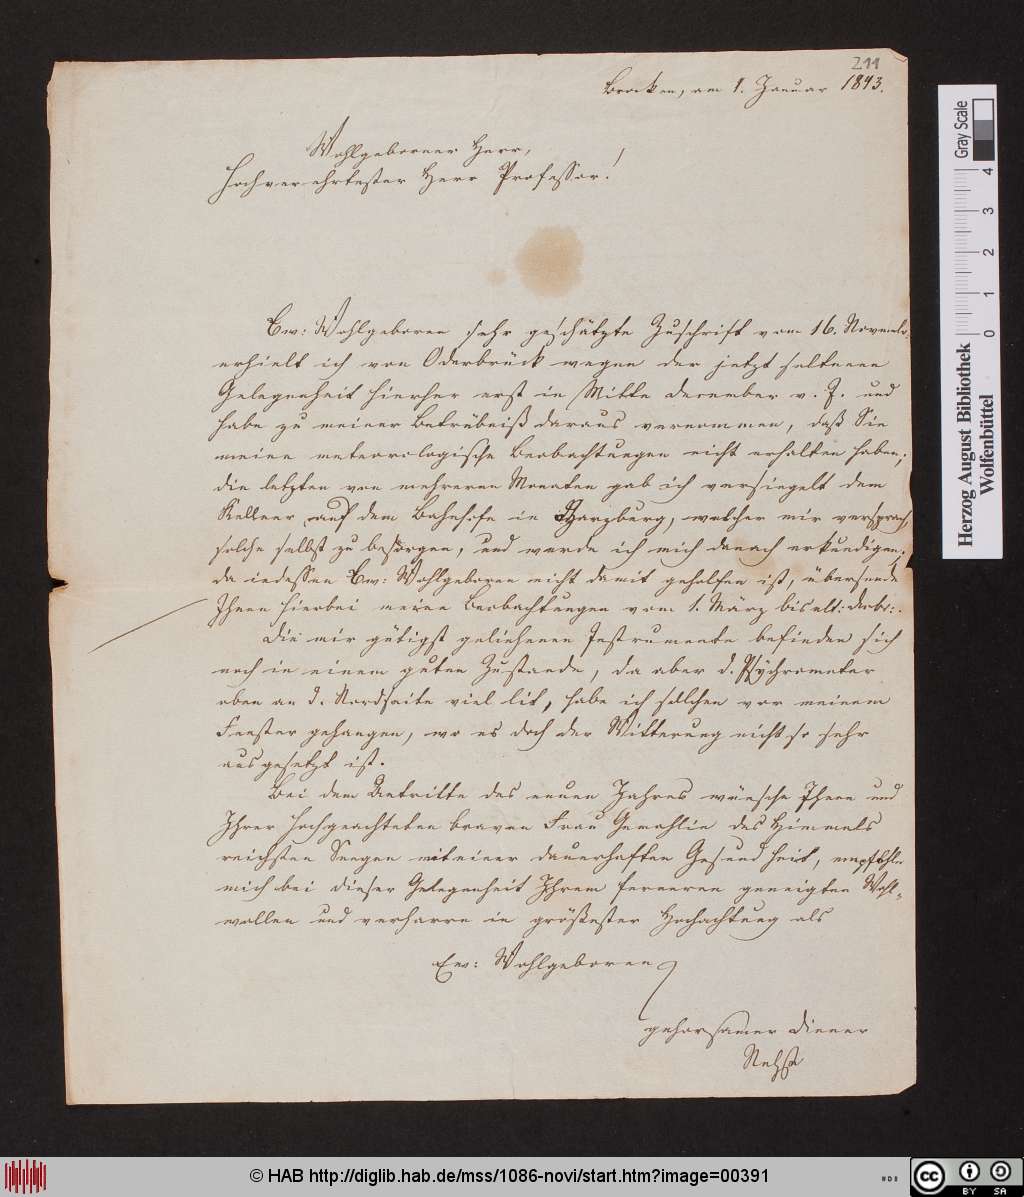 211
Brocken, am 1. Januar 1843.
Wohlgeborner Herr,
Hochverehrtester Herr Professor!
Ew: Wohlgeboren sehr geschätzte Zuschrift vom 16. Novembr.
erhielt ich von Oderbrück wegen der jetzt seltenen
Gelegenheit hierher erst in Mitte December v. J. und
habe zu meiner Betrübniß daraus vernommen, daß Sie
meine meteorologische Beobachtungen nicht erhalten haben;
die letzten von mehreren Monaten gab ich versiegelt dem
Kellner auf dem Bahnhofe in Harzburg, welcher mir versprach,
solche selbst zu besorgen, und werde ich mich danach erkundigen.
da indessen Ew: Wohlgeboren nicht damit geholfen ist, übersende
Ihnen hierbei meine Beobachtungen vom 1. März bis ult: Decbr:.
Die mir gütigst geliehenen Instrumente befinden sich
noch in einem guten Zustande, da aber d. Psychrometer
oben an d. Nordseite viel lit, habe ich solchen vor meinem
Fenster gehangen, wo es doch der Witterung nicht so sehr
ausgesetzt ist.
Bei dem Antritte des neuen Jahres wünsche Ihnen und
Ihrer hochgeachteten braven Frau Gemahlin des Himmels
reichsten Seegen mit einer dauerhaften Gesundheit, empfehle
mich bei dieser Gelegenheit Ihrem ferneren geneigten Wohl-
wollen und verharre in größester Hochachtung als
Ew: Wohlgeboren
gehorsamer Diener
Nehse
Gray Scale
0 1 2 3 4
Herzog August Bibliothek
Wolfenbüttel
© HAB http://diglib.hab.de/mss/1086-novi/start.htm?image=00391
cc BY SA